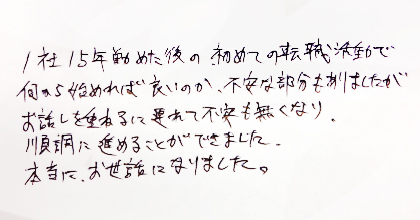 1社15年勤めた後の初めての転職活動で
何から始めれば良いのか、不安な部分もありましたが
お話しを重ねるに連れて不安も無くなり、
順調に進めることができました。
本当に、お世話になりました。